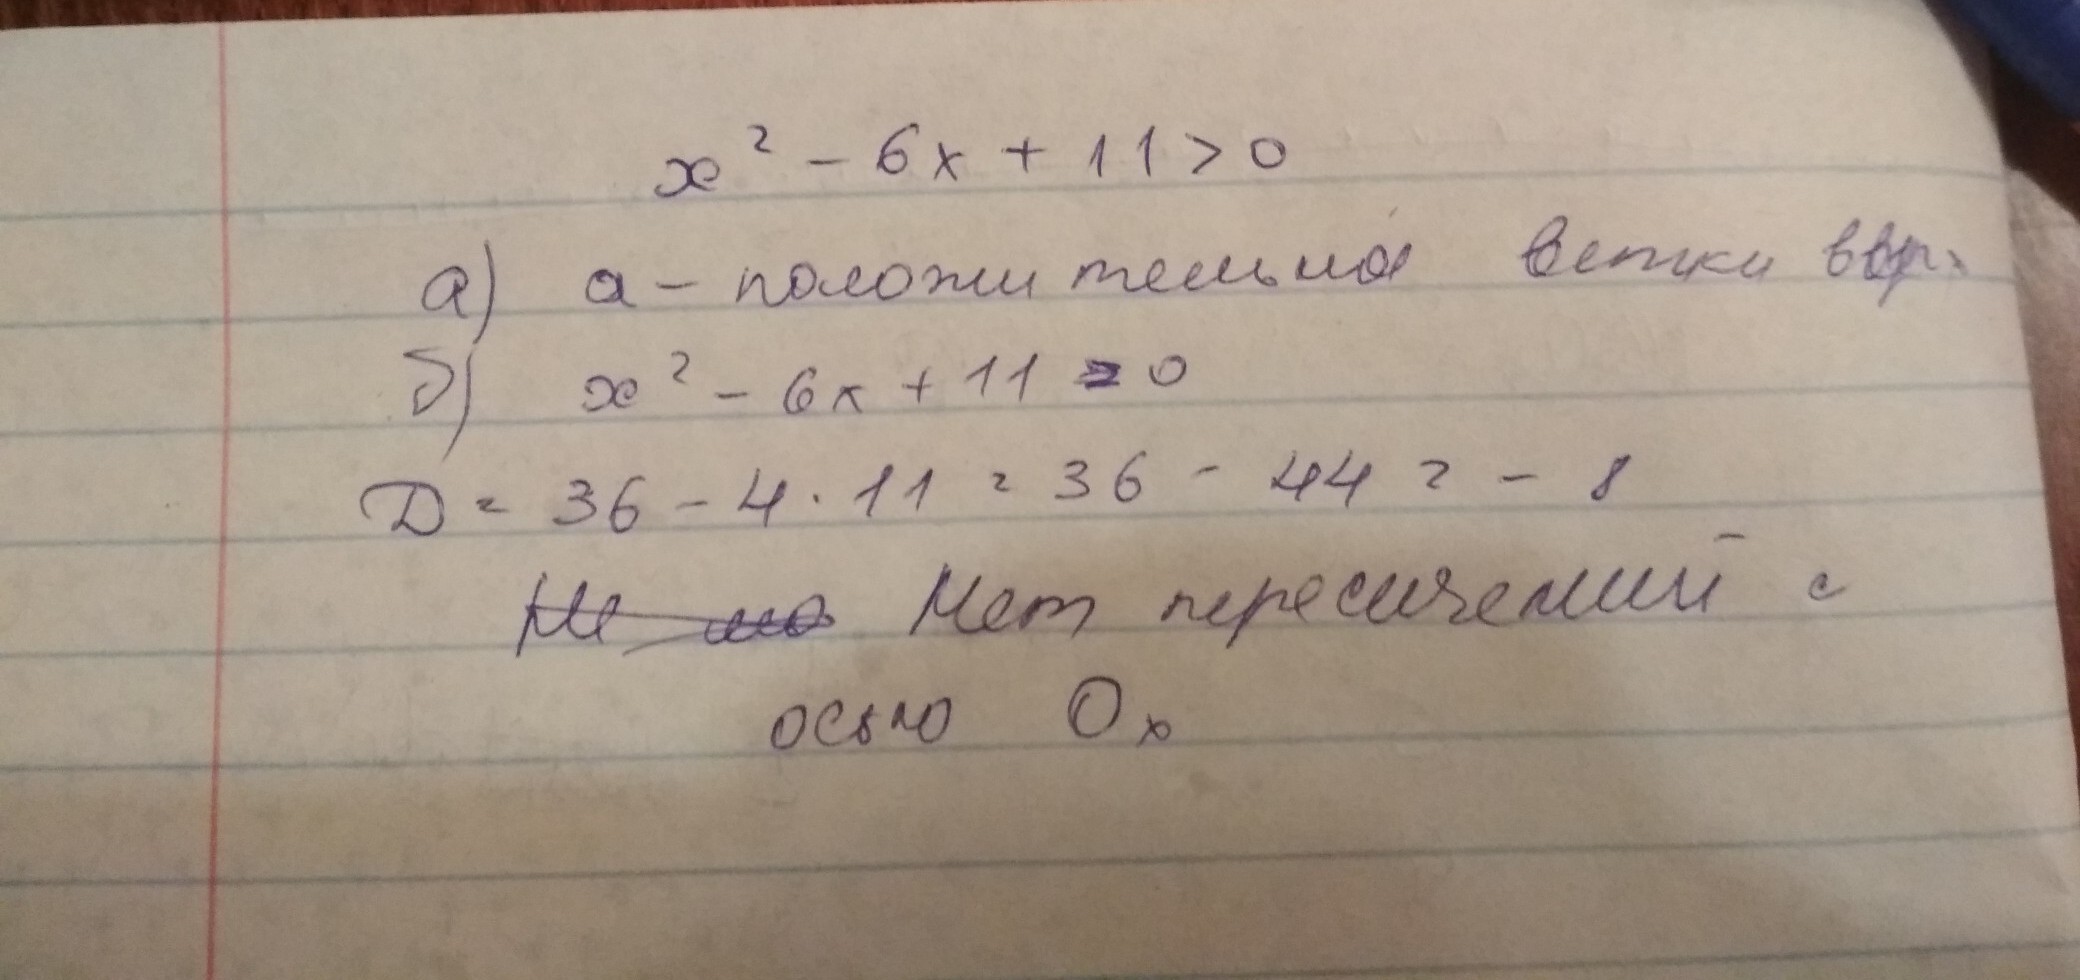 x² - 6x + 11 > 0
а) а - положительная ветки ввр.
б) x² - 6x + 11 = 0
D = 36 - 4 · 11 = 36 - 44 = - 8
Нет пересичений с
осью Ox